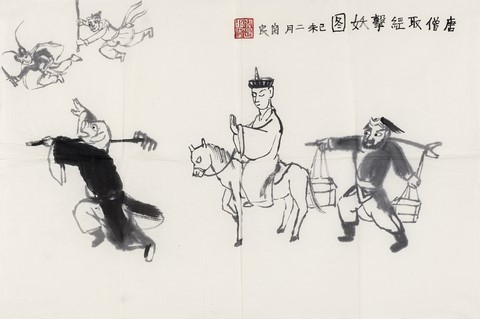 唐僧取经擊妖图己未二月自良